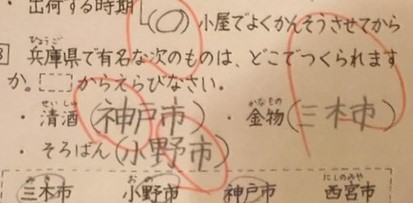 出荷する時期 (○) 小屋でよくかんそうさせてから
兵庫県で有名な次のものは、どこでつくられます
か。[ ]からえらびなさい。
・清酒(神戸市) ・金物(三木市)
・そろばん(小野市)
三木市 小野市 神戸市 西宮市